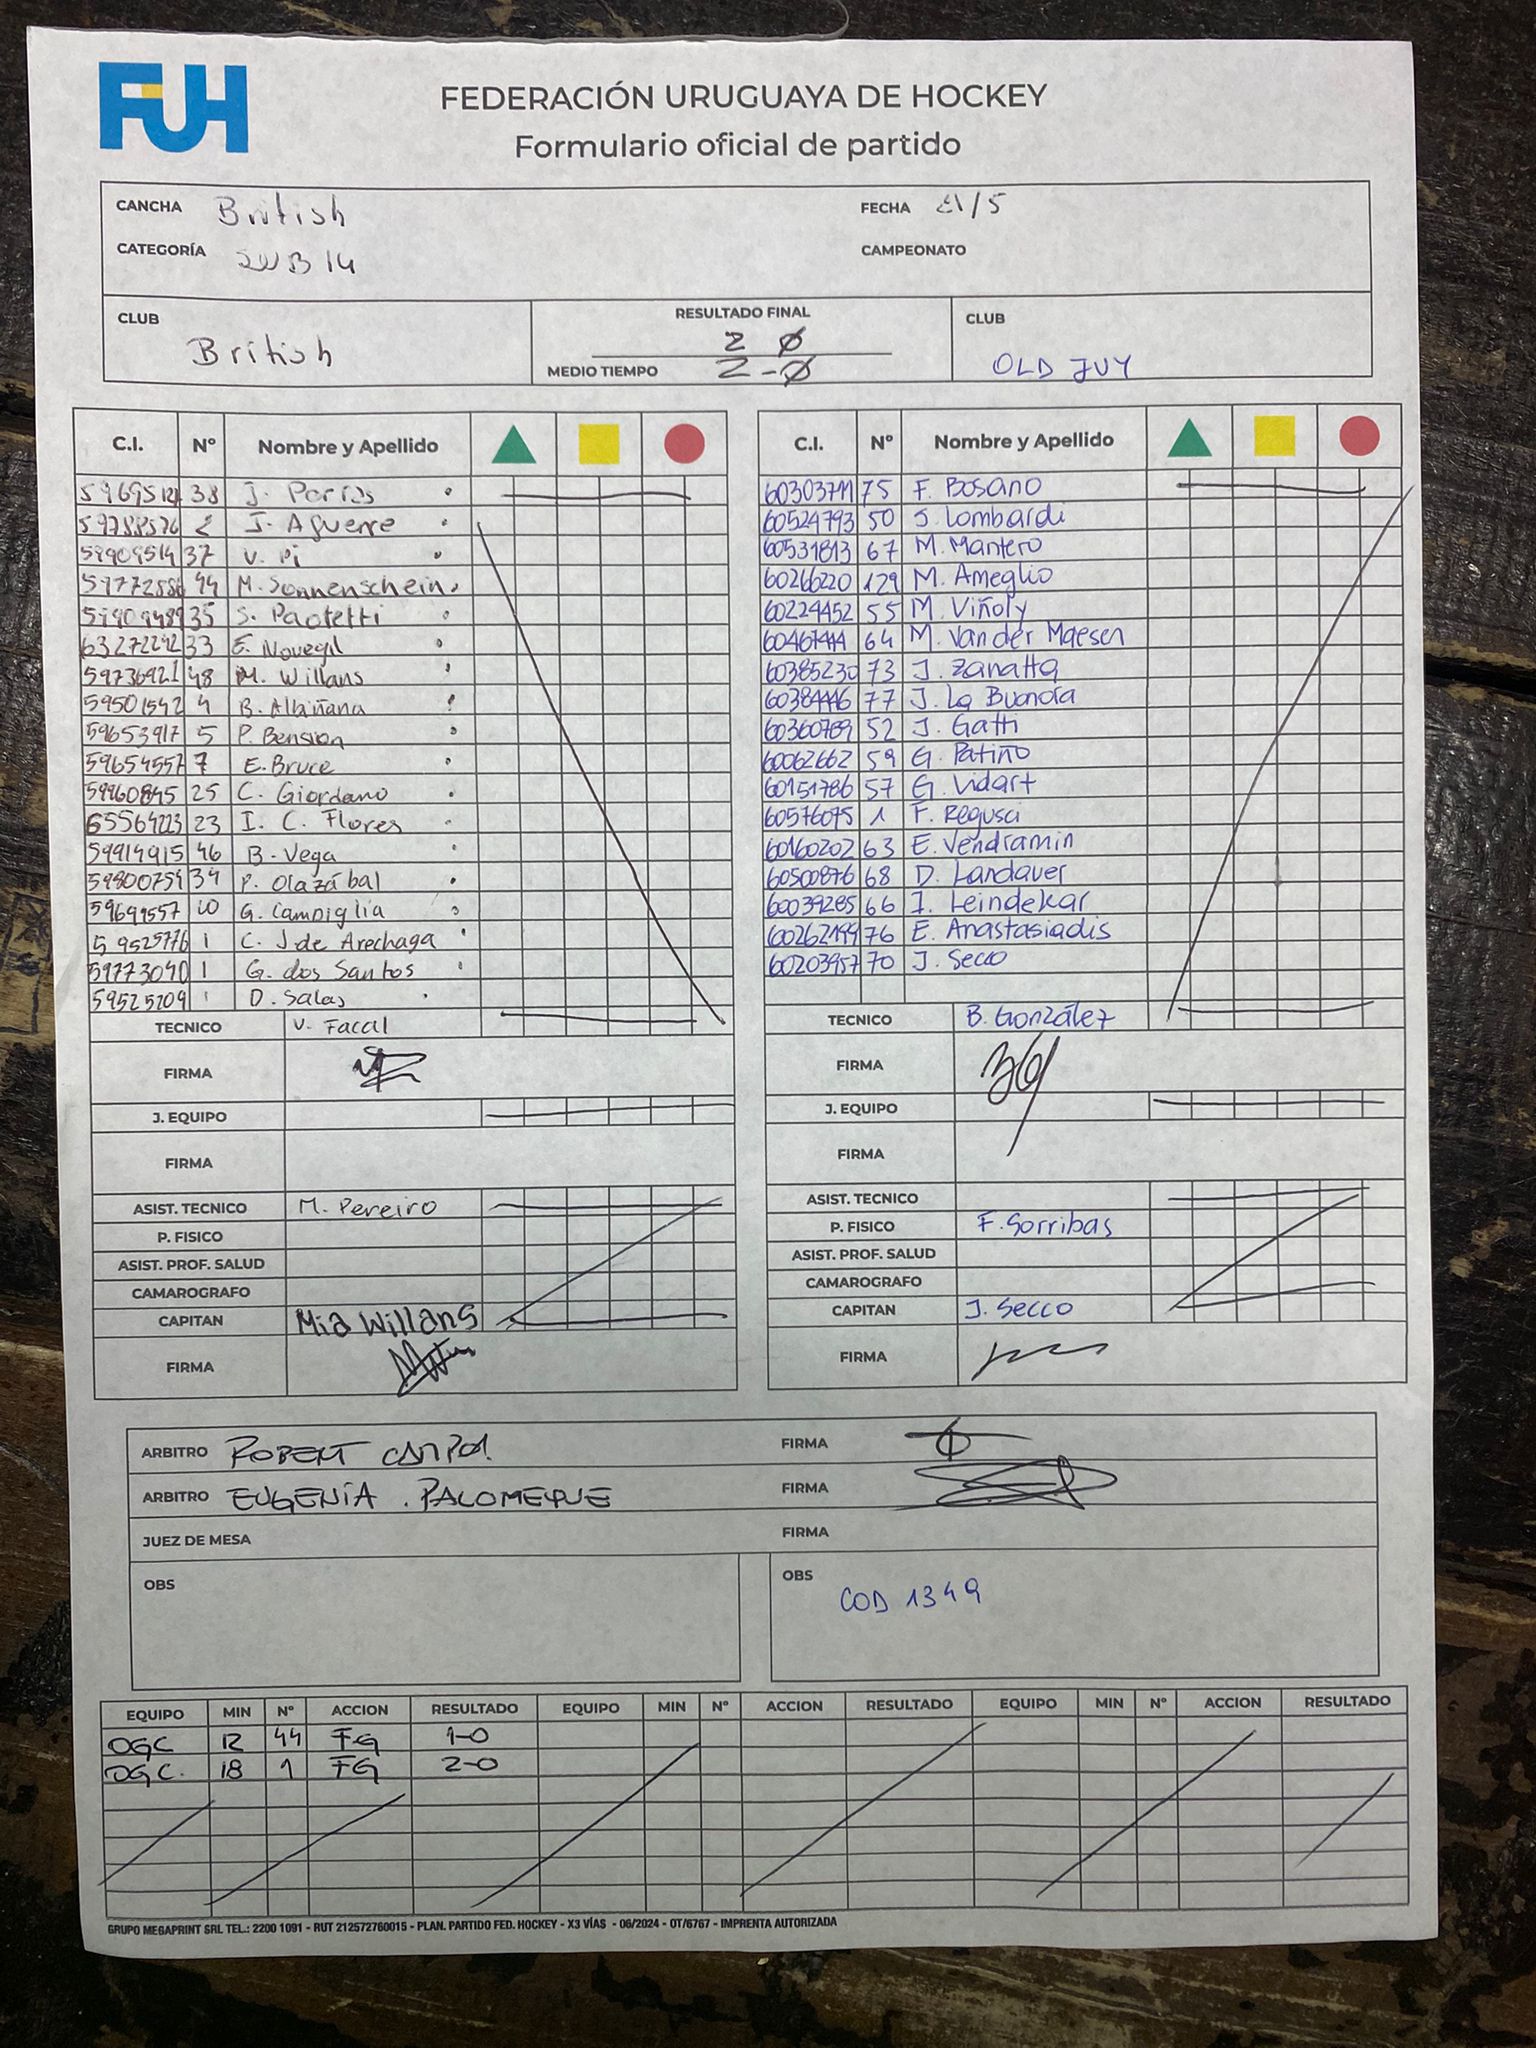 FUH
FEDERACIÓN URUGUAYA DE HOCKEY
Formulario oficial de partido
CANCHA British
FECHA 21/5
CATEGORÍA SUB 14
CAMPEONATO
CLUB British
RESULTADO FINAL 2 0
MEDIO TIEMPO 2-0
CLUB OLD JUY
C.I. Nº Nombre y Apellido
38 J. Porras
59788576 2 J. Aguerre
58909514 37 V. Pi
59772586 44 M. Sonnenschein
35 S. Paoletti
63272242 33 E. Novegil
59736921 48 M. Willans
59501542 4 B. Albiñana
59653917 5 P. Bension
59654557 7 E. Bruce
59960845 25 C. Giordano
65564223 23 I. C. Flores
59914915 46 B. Vega
59800754 34 P. Olazábal
59649557 10 G. Campiglia
59525776 1 C. J. de Arechaga
59773040 1 G. dos Santos
59525209 1 D. Salas
TECNICO V. Facal
FIRMA
J. EQUIPO
FIRMA
ASIST. TECNICO M. Pereiro
P. FISICO
ASIST. PROF. SALUD
CAMAROGRAFO
CAPITAN Mia Willans
FIRMA
C.I. Nº Nombre y Apellido
60303711 75 F. Bosano
60524793 50 S. Lombardi
60531813 67 M. Mantero
60266220 129 M. Ameglio
60224452 55 M. Viñoly
64 M. Van der Maesen
60385230 73 J. Zanatta
60384446 77 J. La Buonora
60360789 52 J. Gatti
60062662 59 G. Patiño
60151786 57 G. Vidart
60576075 1 F. Regusci
60160202 63 E. Vendramin
60500876 68 D. Landauer
60039285 66 I. Leindekar
60262199 76 E. Anastasiadis
60203957 70 J. Secco
TECNICO B. González
FIRMA
J. EQUIPO
FIRMA
ASIST. TECNICO
P. FISICO F. Sorribas
ASIST. PROF. SALUD
CAMAROGRAFO
CAPITAN J. Secco
FIRMA
ARBITRO ROBERT FIRMA
ARBITRO EUGENIA. PALOMEQUE FIRMA
JUEZ DE MESA FIRMA
OBS
OBS COD 1349
EQUIPO MIN Nº ACCION RESULTADO EQUIPO MIN Nº ACCION RESULTADO EQUIPO MIN Nº ACCION RESULTADO
OGC 12 44 FG 1-0
OGC. 18 1 FG 2-0
GRUPO MEGAPRINT SRL TEL.: 2200 1091 - RUT 212572760015 - PLAN. PARTIDO FED. HOCKEY - X3 VÍAS - 06/2024 - OT/6767 - IMPRENTA AUTORIZADA